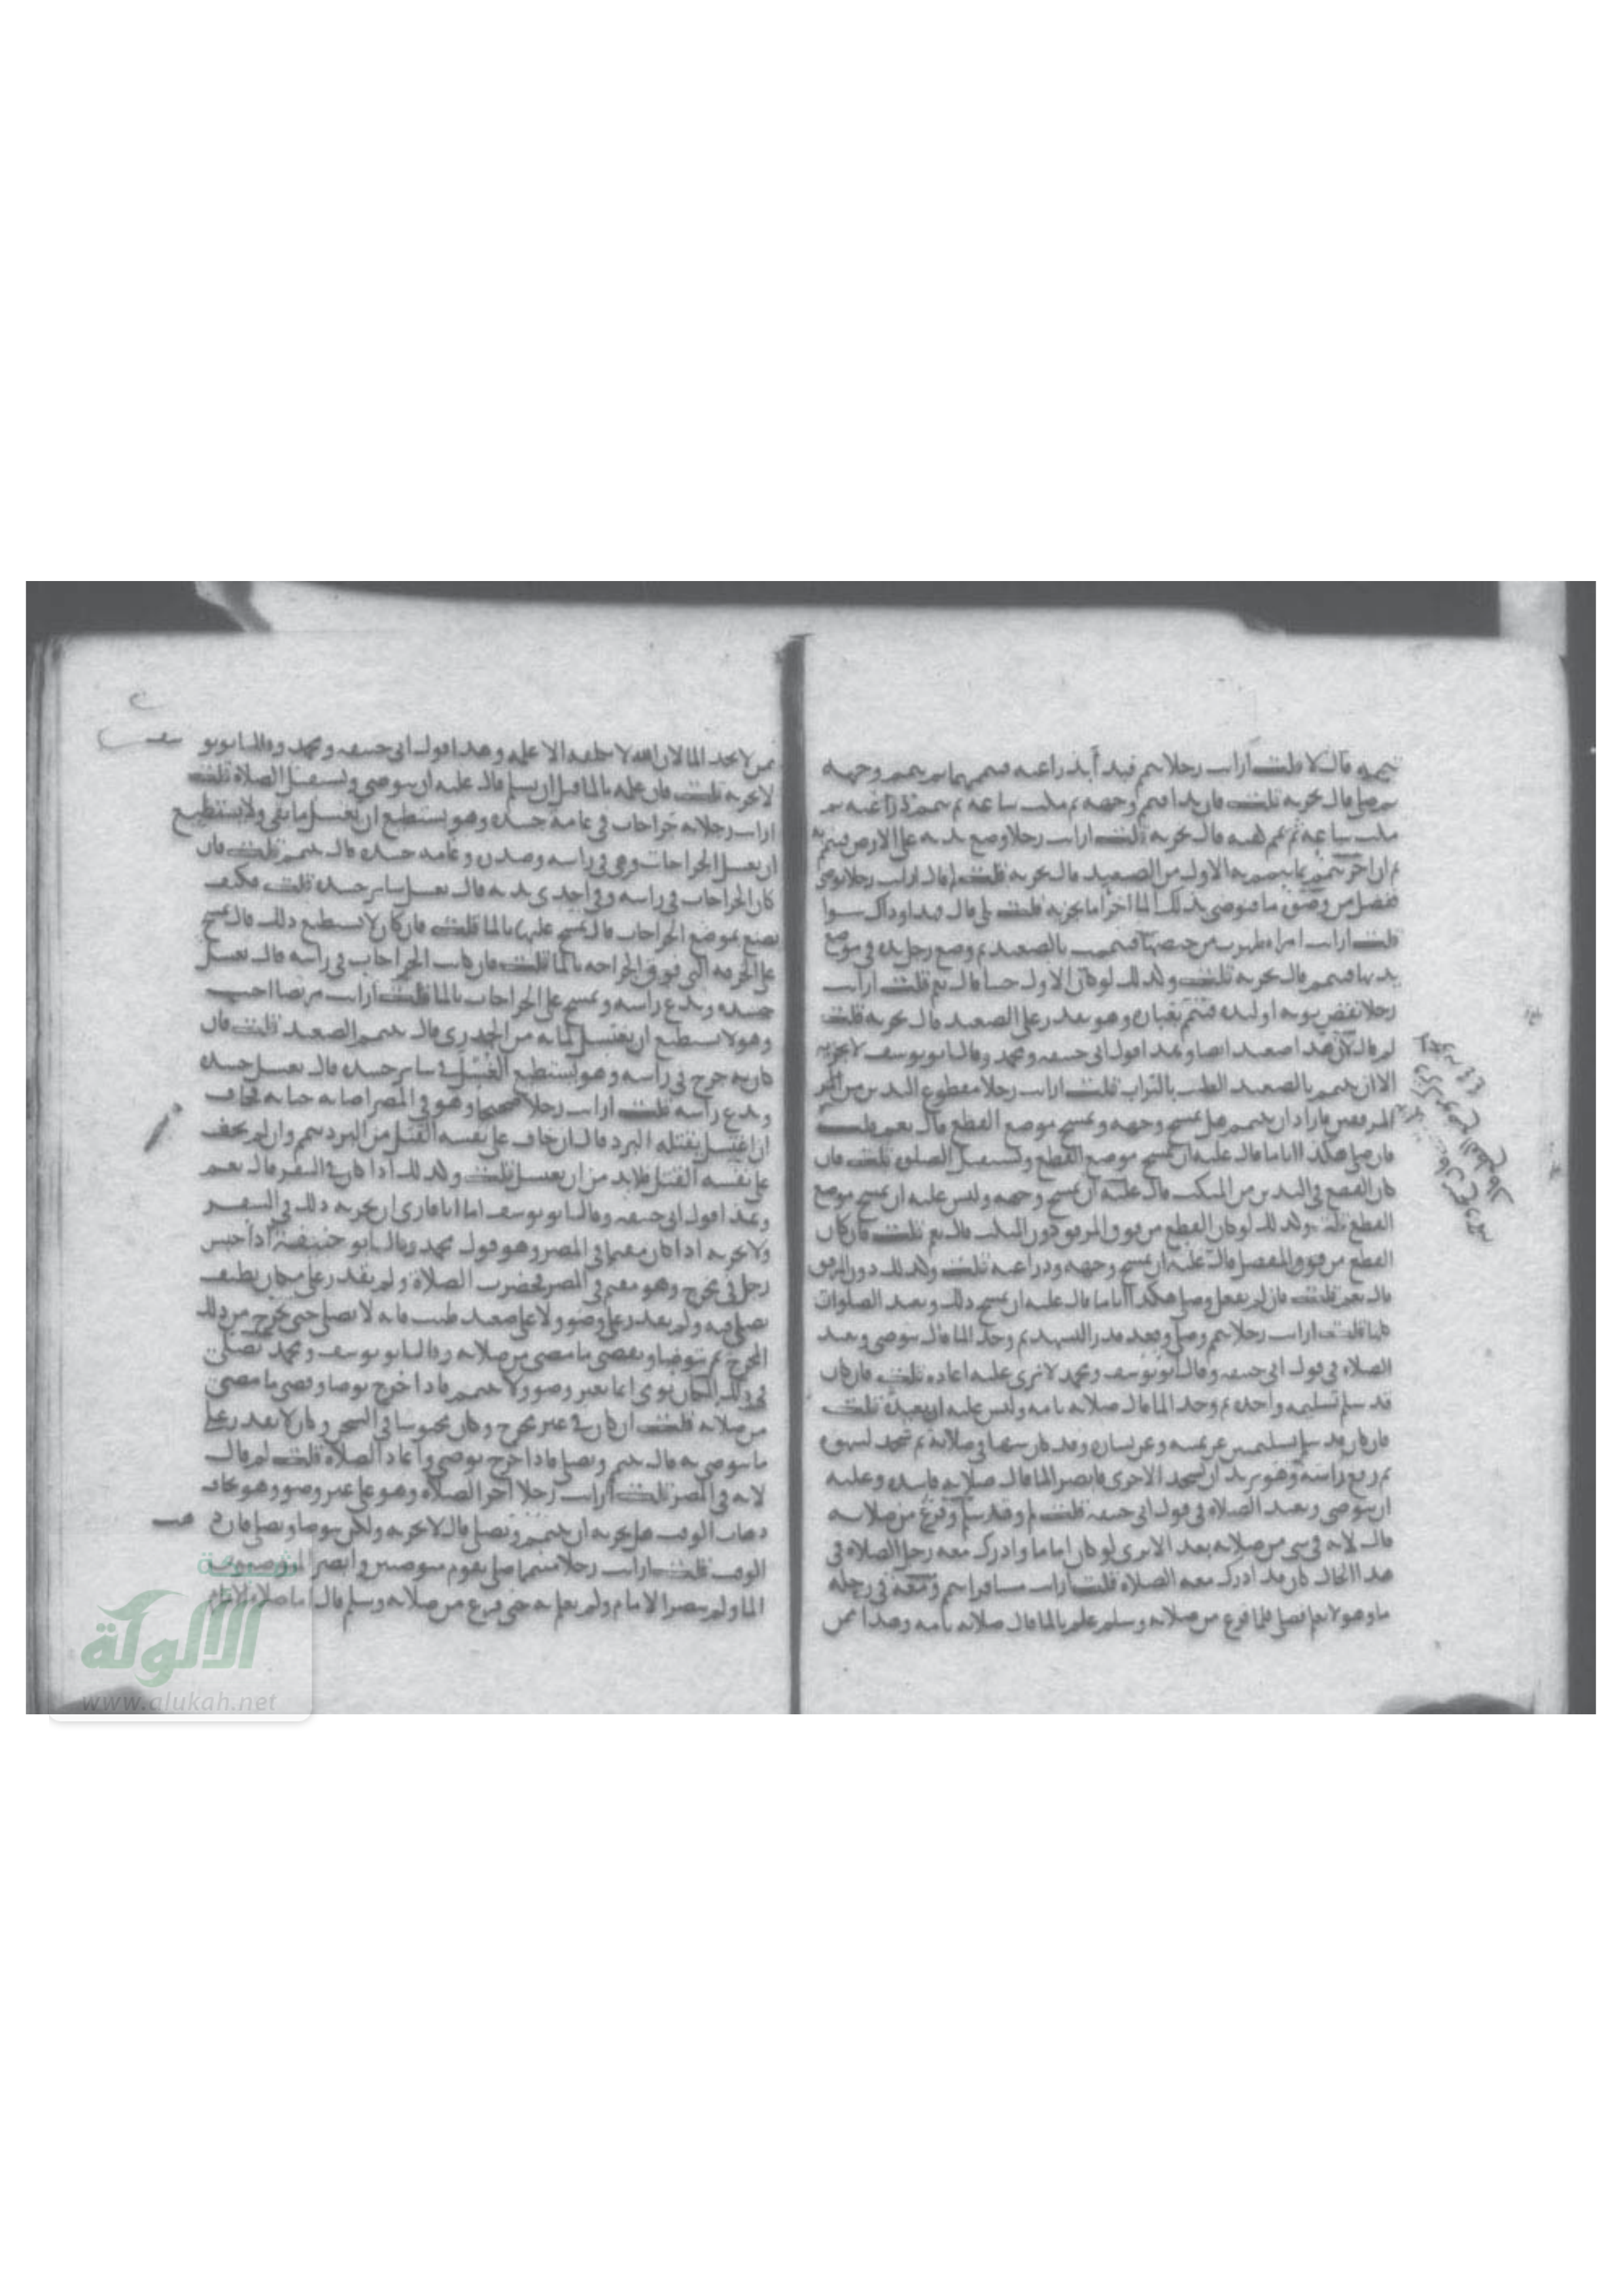 تيممه قال لا قلت ارايت رجلا تيمم فبدأ بذراعيه فيممهما ثم تيمم وجهه
ثم صلى قال يجزيه قلت فان بدا فيمم وجهه ثم مكث ساعة ثم تيمم ذراعيه ثم
مكث ساعة ثم يمم كفيه قال يجزيه قلت ارايت رجلا وضع يديه على الارض فتيمم به
ثم ان اخر تيمم بما تيمم به الاول من الصعيد قال يجزيه قلت لم قال ارايت رجلا توضى
ففضل من وضوئه ما فتوضى بذلك الما اخر اما يجزيه قلت بلى قال فهذا وذاك سوا
قلت ارايت امراه طهرت من حيضها فتيممت بالصعيد ثم وضع رجل يده في موضع
يديها فتيمم قال يجزيه قلت وكذلك لو كان الاول جنبا قال نعم قلت ارايت
رجلا نفض ثوبه او لبده فتيمم بغباره وهو يقدر على الصعيد قال يجزيه قلت
لم قال لان هذا صعيد ايضا وهذا قول ابي حنيفه ومحمد وقال ابو يوسف لا يجزيه
الا ان يتيمم بالصعيد الطيب بالتراب قلت ارايت رجلا مقطوع اليدين من
المرفقين فاراد ان يتيمم هل يمسح وجهه ويمسح موضع القطع قال نعم قلت
فان صلى هكذا اياما قال عليه ان يمسح موضع القطع ويستقبل الصلوه قلت فان
كان القطع في اليدين من المنكب قال عليه ان يمسح وجهه وليس عليه ان يمسح موضع
القطع قلت وكذلك لو كان القطع من فوق المرفق دون المنكب قال نعم قلت فان كان
القطع من فوق المفصل قال عليه ان يمسح وجهه وذراعيه قلت وكذلك دون المرفق
قال نعم قلت فان لم يفعل وصلى هكذا اياما قال عليه ان يمسح ذلك ويعيد الصلوات
كلها قلت ارايت رجلا تيمم وصلى وقعد قدر التشهد ثم وجد الما قال يتوضى ويعيد
الصلاه في قول ابي حنيفه وقال ابو يوسف ومحمد لا نرى عليه اعاده قلت فان كان
قد سلم تسليمه واحده ثم وجد الما قال صلاته تامه وليس عليه ان يعيد قلت
فان كان قد سلم تسليمتين عن يمينه وعن يساره وقد كان سها في صلاته ثم سجد لسهوه
ثم رفع راسه وهو يريد ان يسجد الاخرى فابصر الما قال صلاته فاسده وعليه
ان يتوضى ويعيد الصلاه في قول ابي حنيفه قلت لم وقد سلم وفرغ من صلاته
قال لانه في شي من صلاته بعد الا ترى لو كان اماما وادرك معه رجل الصلاه في
هذا الحال كان قد ادرك معه الصلاه قلت ارايت مسافرا تيمم ومعه في رحله
ما وهو لا يعلم فصلى فلما فرغ من صلاته وسلم علم بالما قال صلاته تامه وهذا ممن
ممن لا يجد الما لان الله لا يكلفه الا علمه وهذا قول ابي حنيفه ومحمد وقال ابو يوسف
لا يجزيه قلت فان علم بالما قبل ان يسلم قال عليه ان يتوضى ويستقبل الصلاه قلت
ارايت رجلا به جراحات في عامه جسده وهو يستطيع ان يغسل ما بقي ولا يستطيع
ان يغسل الجراحات وهي في راسه وصدره وعامه جسده قال يتيمم قلت فان
كان الجراحات في راسه وفي احدى يديه قال يغسل ساير جسده قلت فكيف
يصنع بموضع الجراحات قال يمسح عليها بالما قلت فان كان لا يستطيع ذلك قال يمسح
على الخرقه التي فوق الجراحه بالما قلت فان كانت الجراحات في راسه قال يغسل
جسده ويدع راسه ويمسح على الجراحات بالما قلت ارايت مريضا اجنب
وهو لا يستطيع ان يغتسل لما به من الجدري قال يتيمم الصعيد قلت فان
كان به جرح في راسه وهو يستطيع الغسل في ساير جسده قال يغسل جسده
ويدع راسه قلت ارايت رجلا صحيحا وهو في المصر اصابته جنابه فخاف
ان اغتسل يقتله البرد قال ان خاف على نفسه القتل من البرد تيمم وان لم يخف
على نفسه القتل فلا بد من ان يغتسل قلت وكذلك اذا كان في السفر قال نعم
وهذا قول ابي حنيفه وقال ابو يوسف اما انا فارى ان يجزيه ذلك في السفر
ولا يجزيه اذا كان مقيما في المصر وهو قول محمد وقال ابو حنيفة اذا حبس
رجل في مخرج وهو مقيم في المصر فحضرت الصلاة ولم يقدر على مكان نظيف
يصلي فيه ولم يقدر على وضو ولا على صعيد طيب فانه لا يصلي حتى يخرج من ذلك
المخرج ثم يتوضا ويقضي ما مضى من صلاته وقال ابو يوسف ومحمد يصلى
في ذلك المكان يومي ايما بغير وضو ولا تيمم فاذا خرج توضا وقضى ما مضى
من صلاته قلت ان كان في غير مخرج وكان محبوسا في السجن وكان لا يقدر على
ما يتوضى به قال يتيمم ويصلي فاذا خرج توضى واعاد الصلاه قلت لم قال
لانه في المصر قلت ارايت رجلا اخر الصلاه وهو على غير وضو وهو يخاف
ذهاب الوقت هل يجزيه ان يتيمم ويصلي قال لا يجزيه ولكن يتوضا ويصلي فان ذهب
الوقت قلت ارايت رجلا متيمما صلى بقوم متوضين وابصر المتوضون
الما ولم يبصر الامام ولم يعلم به حتى فرغ من صلاته وسلم قال اما صلاه الامام
شبكة
الألوكة
www.alukah.net